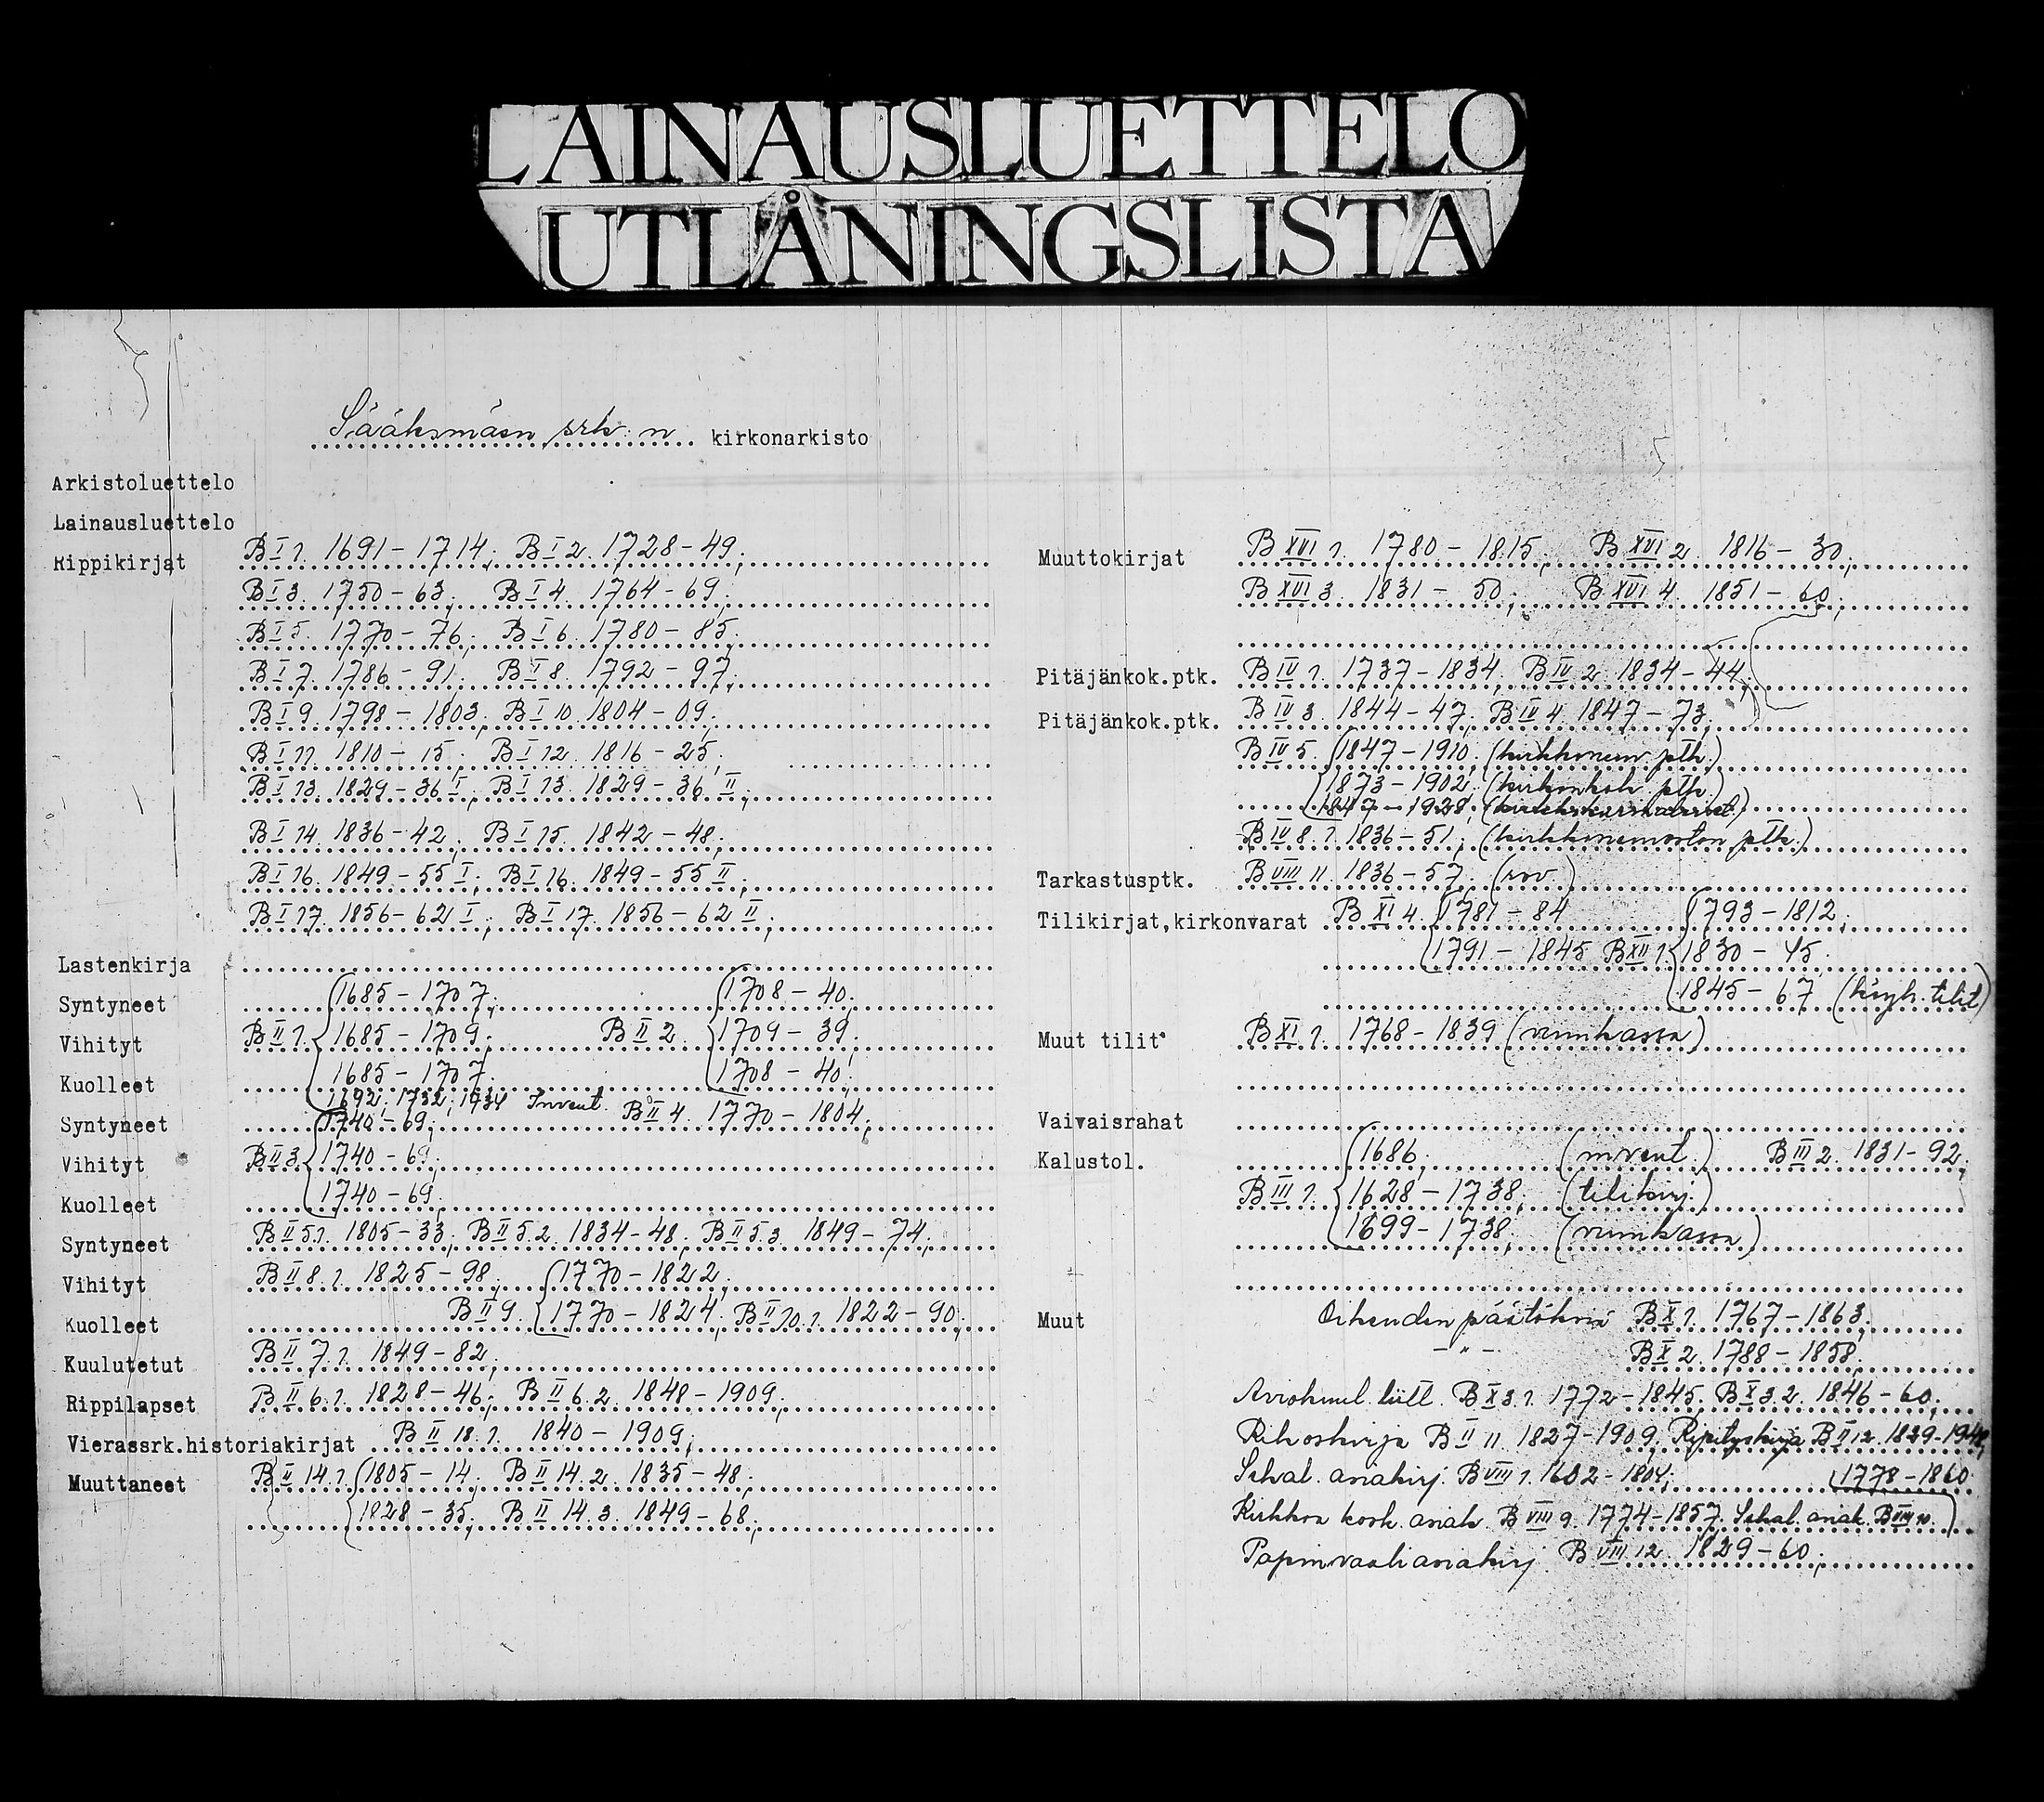 LAINAUSLUETTELO
UTLÅNINGSLISTA
Sääksmäen srk:n kirkonarkisto
Arkistoluettelo
Lainausluettelo
Rippikirjat B I 1. 1691-1714; B I 2. 1728-49;
B I 3. 1750-63; B I 4. 1764-69;
B I 5. 1770-76; B I 6. 1780-85;
B I 7. 1786-91; B I 8. 1792-97;
B I 9. 1798-1803; B I 10. 1804-09;
B I 11. 1810-15; B I 12. 1816-25;
B I 13. 1829-36 I; B I 13. 1829-36 II;
B I 14. 1836-42; B I 15. 1842-48;
B I 16. 1849-55 I; B I 16. 1849-55 II;
B I 17. 1856-62 I; B I 17. 1856-62 II;
Lastenkirja
Syntyneet 1685-1707; 1708-40;
Vihityt B II 1. 1685-1709; B II 2. 1709-39;
Kuolleet 1685-1707; 1708-40;
1692; 1732; 1734 Invent.
Syntyneet 1740-69; B II 4. 1770-1804;
Vihityt B II 3. 1740-69;
Kuolleet 1740-69;
Syntyneet B II 5.1. 1805-33; B II 5.2. 1834-48; B II 5.3. 1849-74;
Vihityt B II 8.1. 1825-98; 1770-1822;
Kuolleet B II 9. 1770-1824; B II 10.1. 1822-90;
Kuulutetut B II 7.1. 1849-82;
Rippilapset B II 6.1. 1828-46; B II 6.2. 1848-1909;
Vierassrk.historiakirjat B II 18.1. 1840-1909;
Muuttaneet B II 14.1. 1805-14; B II 14.2. 1835-48;
1828-35; B II 14.3. 1849-68;
Muuttokirjat B XVI 1. 1780-1815; B XVI 2. 1816-30;
B XVI 3. 1831-50; B XVI 4. 1851-60;
Pitäjänkok.ptk. B IV 1. 1737-1834; B IV 2. 1834-44;
Pitäjänkok.ptk. B IV 3. 1844-47; B IV 4. 1847-73;
B IV 5. 1847-1910; (kirkkoneuv ptk.)
1873-1902; (kirkonkok ptk.)
1847-1928;
B IV 8.1. 1836-51; (kirkkoneuvoston ptk.)
Tarkastusptk. B VIII 11. 1836-57. (rov.)
Tilikirjat,kirkonvarat B XI 4. 1781-84 1793-1812;
1791-1845 B XII 1. 1830-45.
1845-67 (köyh. tilit)
Muut tilit B XI 1. 1768-1839 (viinikassa)
Vaivaisrahat
Kalustol. 1686; (invent.) B III 2. 1831-92;
B III 1. 1628-1738; (tilikirj.)
1699-1738; (viinikassa)
Muut Oikeuden päätöksiä B X 1. 1767-1863;
-"- B X 2. 1788-1858;
Aviokuul. liitt. B X 3.1. 1772-1845. B X 3.2. 1846-60;
Rikoskirja B II 11. 1827-1909; Ripityskirja B II 12. 1829-
Sekal. asiakirj. B VIII 1. 1602-1804; 1778-1860
Kirkkoa kosk. asiak. B VIII 9. 1774-1857. Sekal. asiak. B VIII 10.
Papinvaaliasiakirj. B VIII 12. 1829-60;